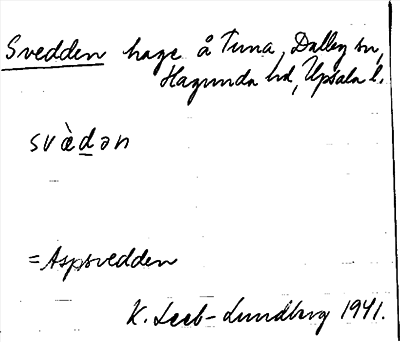 Svedden hage å Tuna, Dalby sn,
Hagunda hd, Upsala l.
svæ̀dən
=Aspsvedden
K. Leeb-Lundberg 1941.